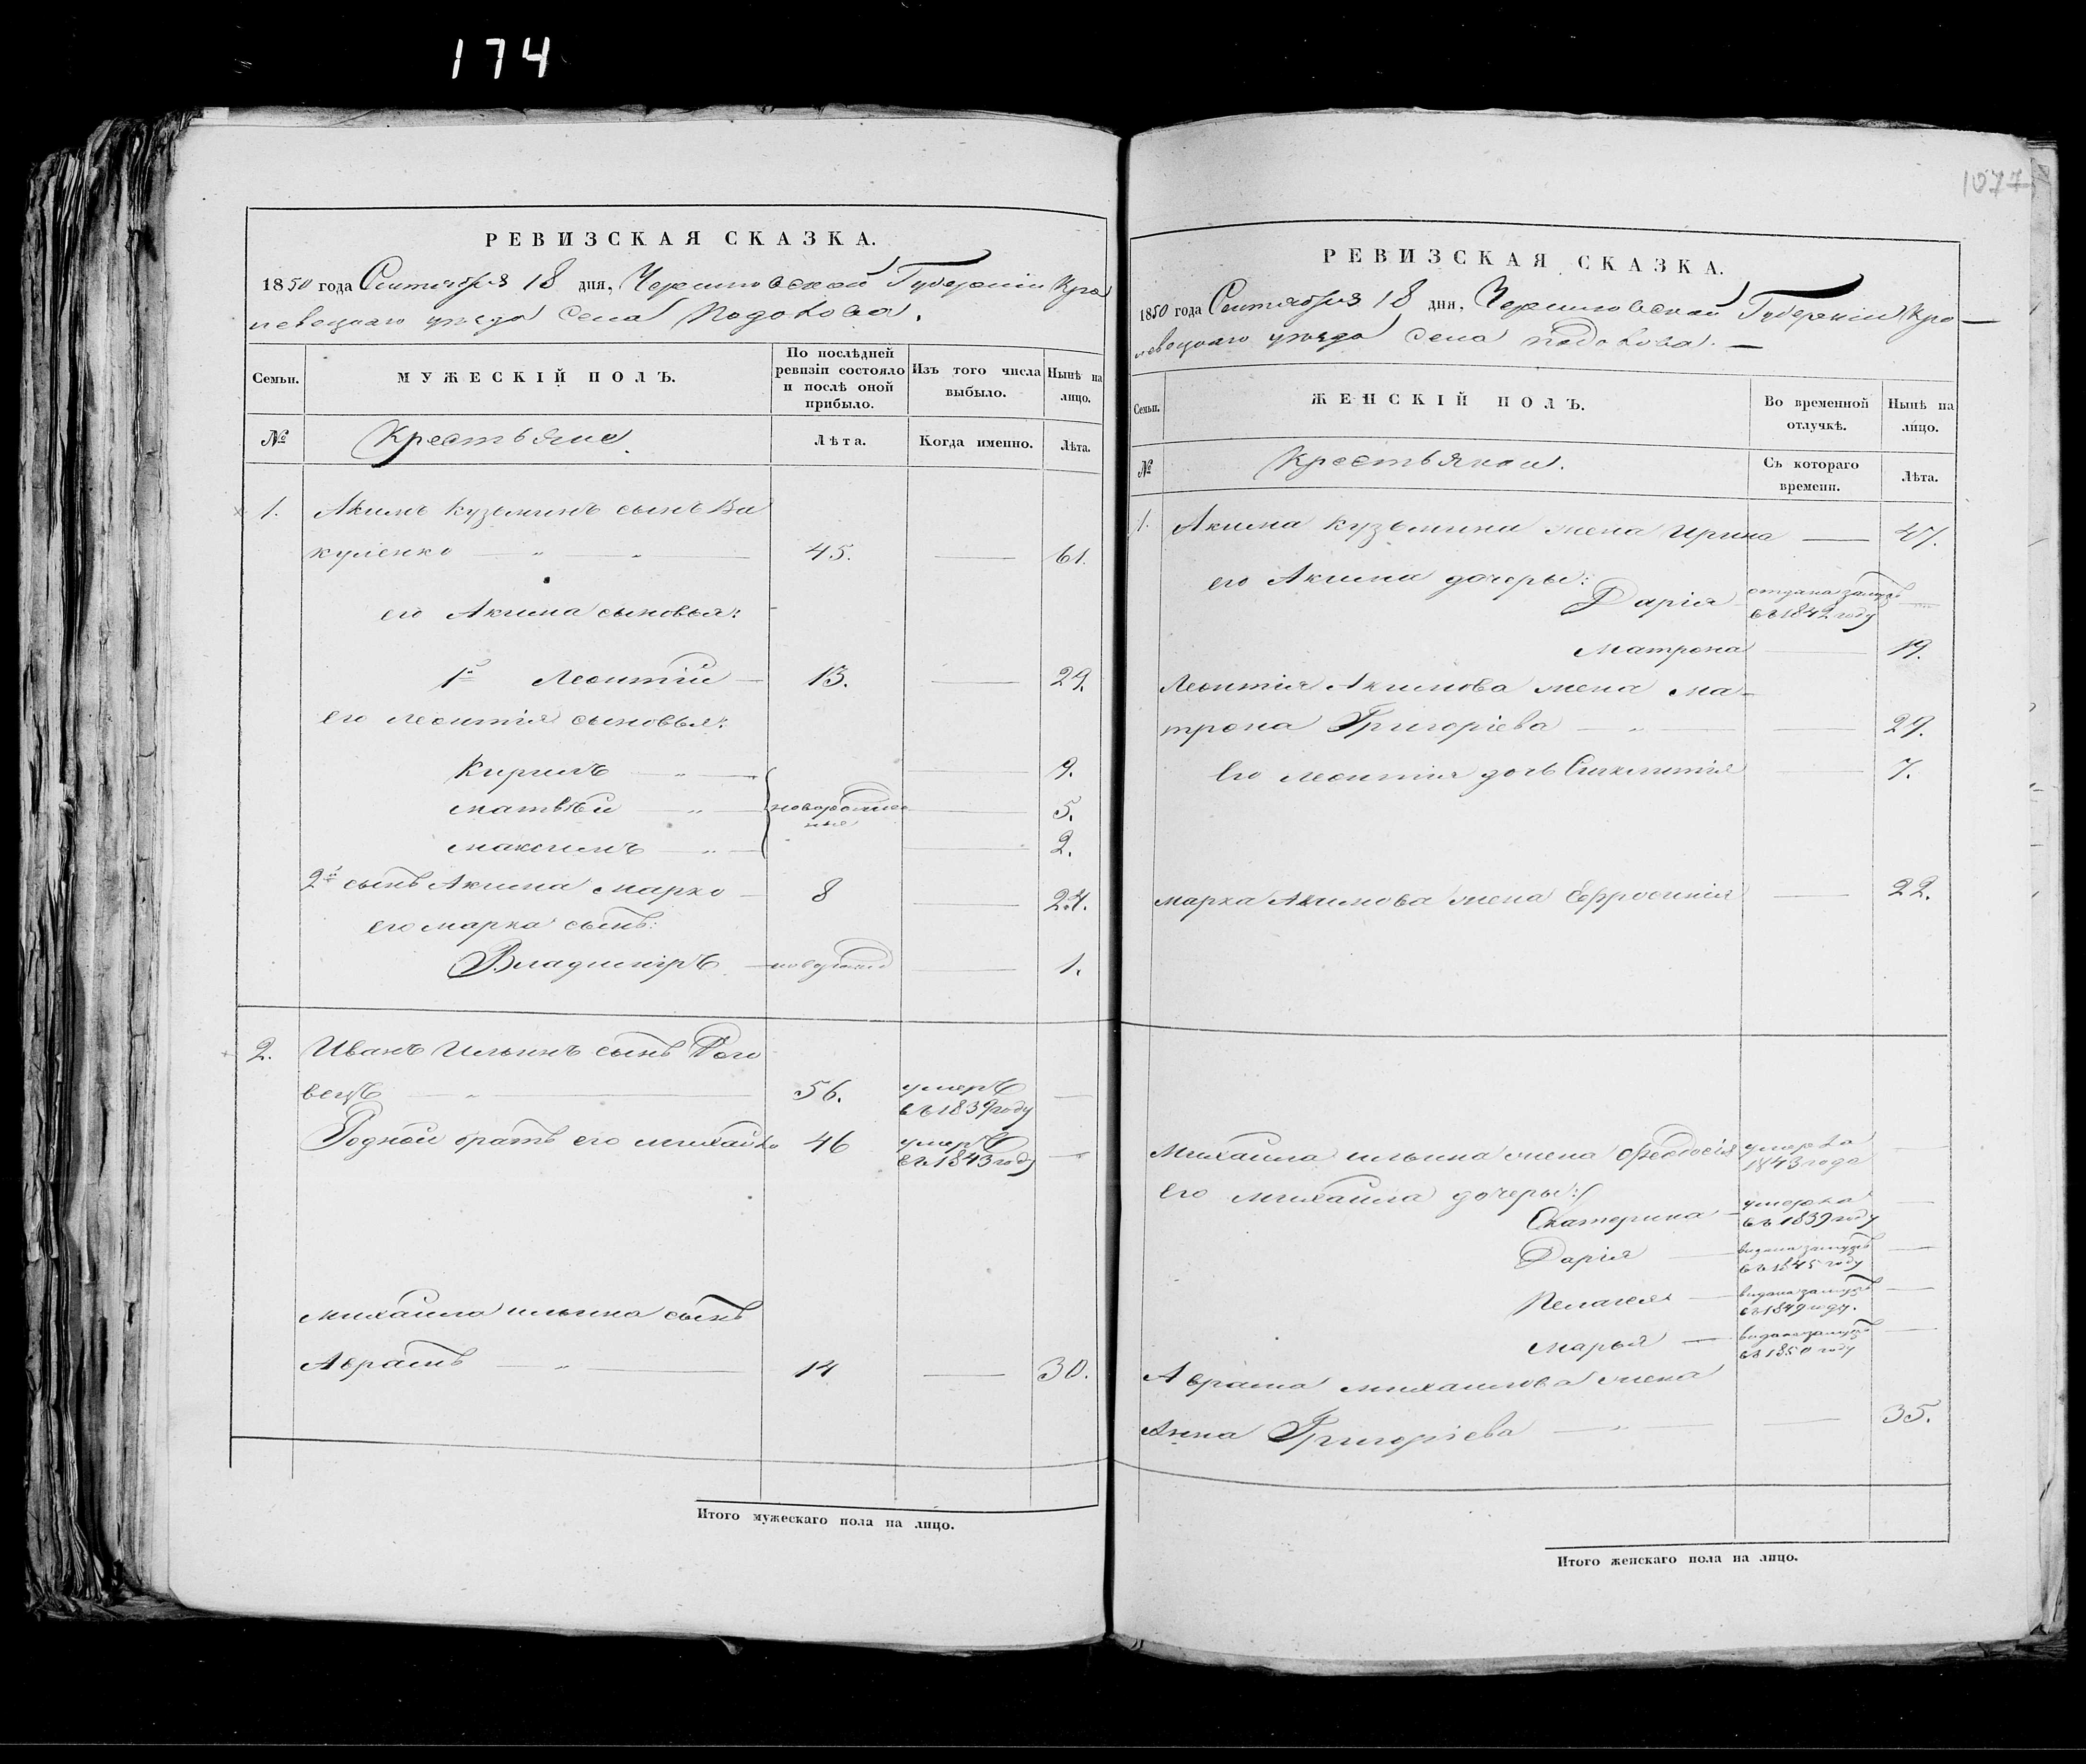 174
1077
РЕВИЗСКАЯ СКАЗКА.
1850 года Сентября 18 дня, Черниговской Губерніи Кро
левецкаго уѣзда Села Подолова.
Семьи.
МУЖЕСКІЙ ПОЛЪ.
По послѣдней ревизіи состояло и послѣ оной прибыло.
Изъ того числа выбыло.
Нынѣ на лицо.
№
Крестьяне.
Лѣта.
Когда именно.
Лѣта.
1. Акимъ Кузьминъ сынъ Ва
куленко — „ — „ — 45. — 61.
его Акима сыновья:
1й Леонтій — 13. — 29.
его Леонтія сыновья:
Кирилъ — „ — — 9.
Матвѣй — „ — новорожден — 5.
ные
Максимъ — „ — — 2.
2й сынъ Акима Марко — 8 — 24.
его Марка сынъ:
Владиміръ — — 1.
2. Иванъ Ильинъ сынъ Рого
вецъ — „ — 56. умеръ въ 1839 году —
Родной братъ его Михайло 46 умеръ въ 1843 году —
Михайла Ильина сынъ
Аврамъ — „ — 14 — 30.
Итого мужескаго пола на лицо.
РЕВИЗСКАЯ СКАЗКА.
1850 года Сентября 18 дня, Черниговской Губерніи Кро—
левецкаго уѣзда Села Подолова. —
Семьи.
ЖЕНСКІЙ ПОЛЪ.
Во временной отлучкѣ.
Нынѣ на лицо.
№
Крестьянки.
Съ котораго времени.
Лѣта.
1. Акима Кузьмина жена Ирина — 47.
его Акима дочеры:
Дарія отдана замужъ въ 1842 году —
Матрона — 19.
Леонтія Акимова жена Ма—
трона Григоріева — „ — — 29.
Его Леонтія дочь — 7.
Марка Акимова жена Ефросинія — 22.
Михайла Ильина жена Ѳеодосія умерла 1843 года —
его Михайла дочеры:
Екатерина — умерла въ 1839 году —
Дарія — видана замужъ въ 1845 году —
Пелагея — видана замужъ въ 1849 году. —
Марья — видана замужъ въ 1850 году —
Аврама Михайлова жена
Анна Григоріева — „ — — 35.
Итого женскаго пола на лицо.